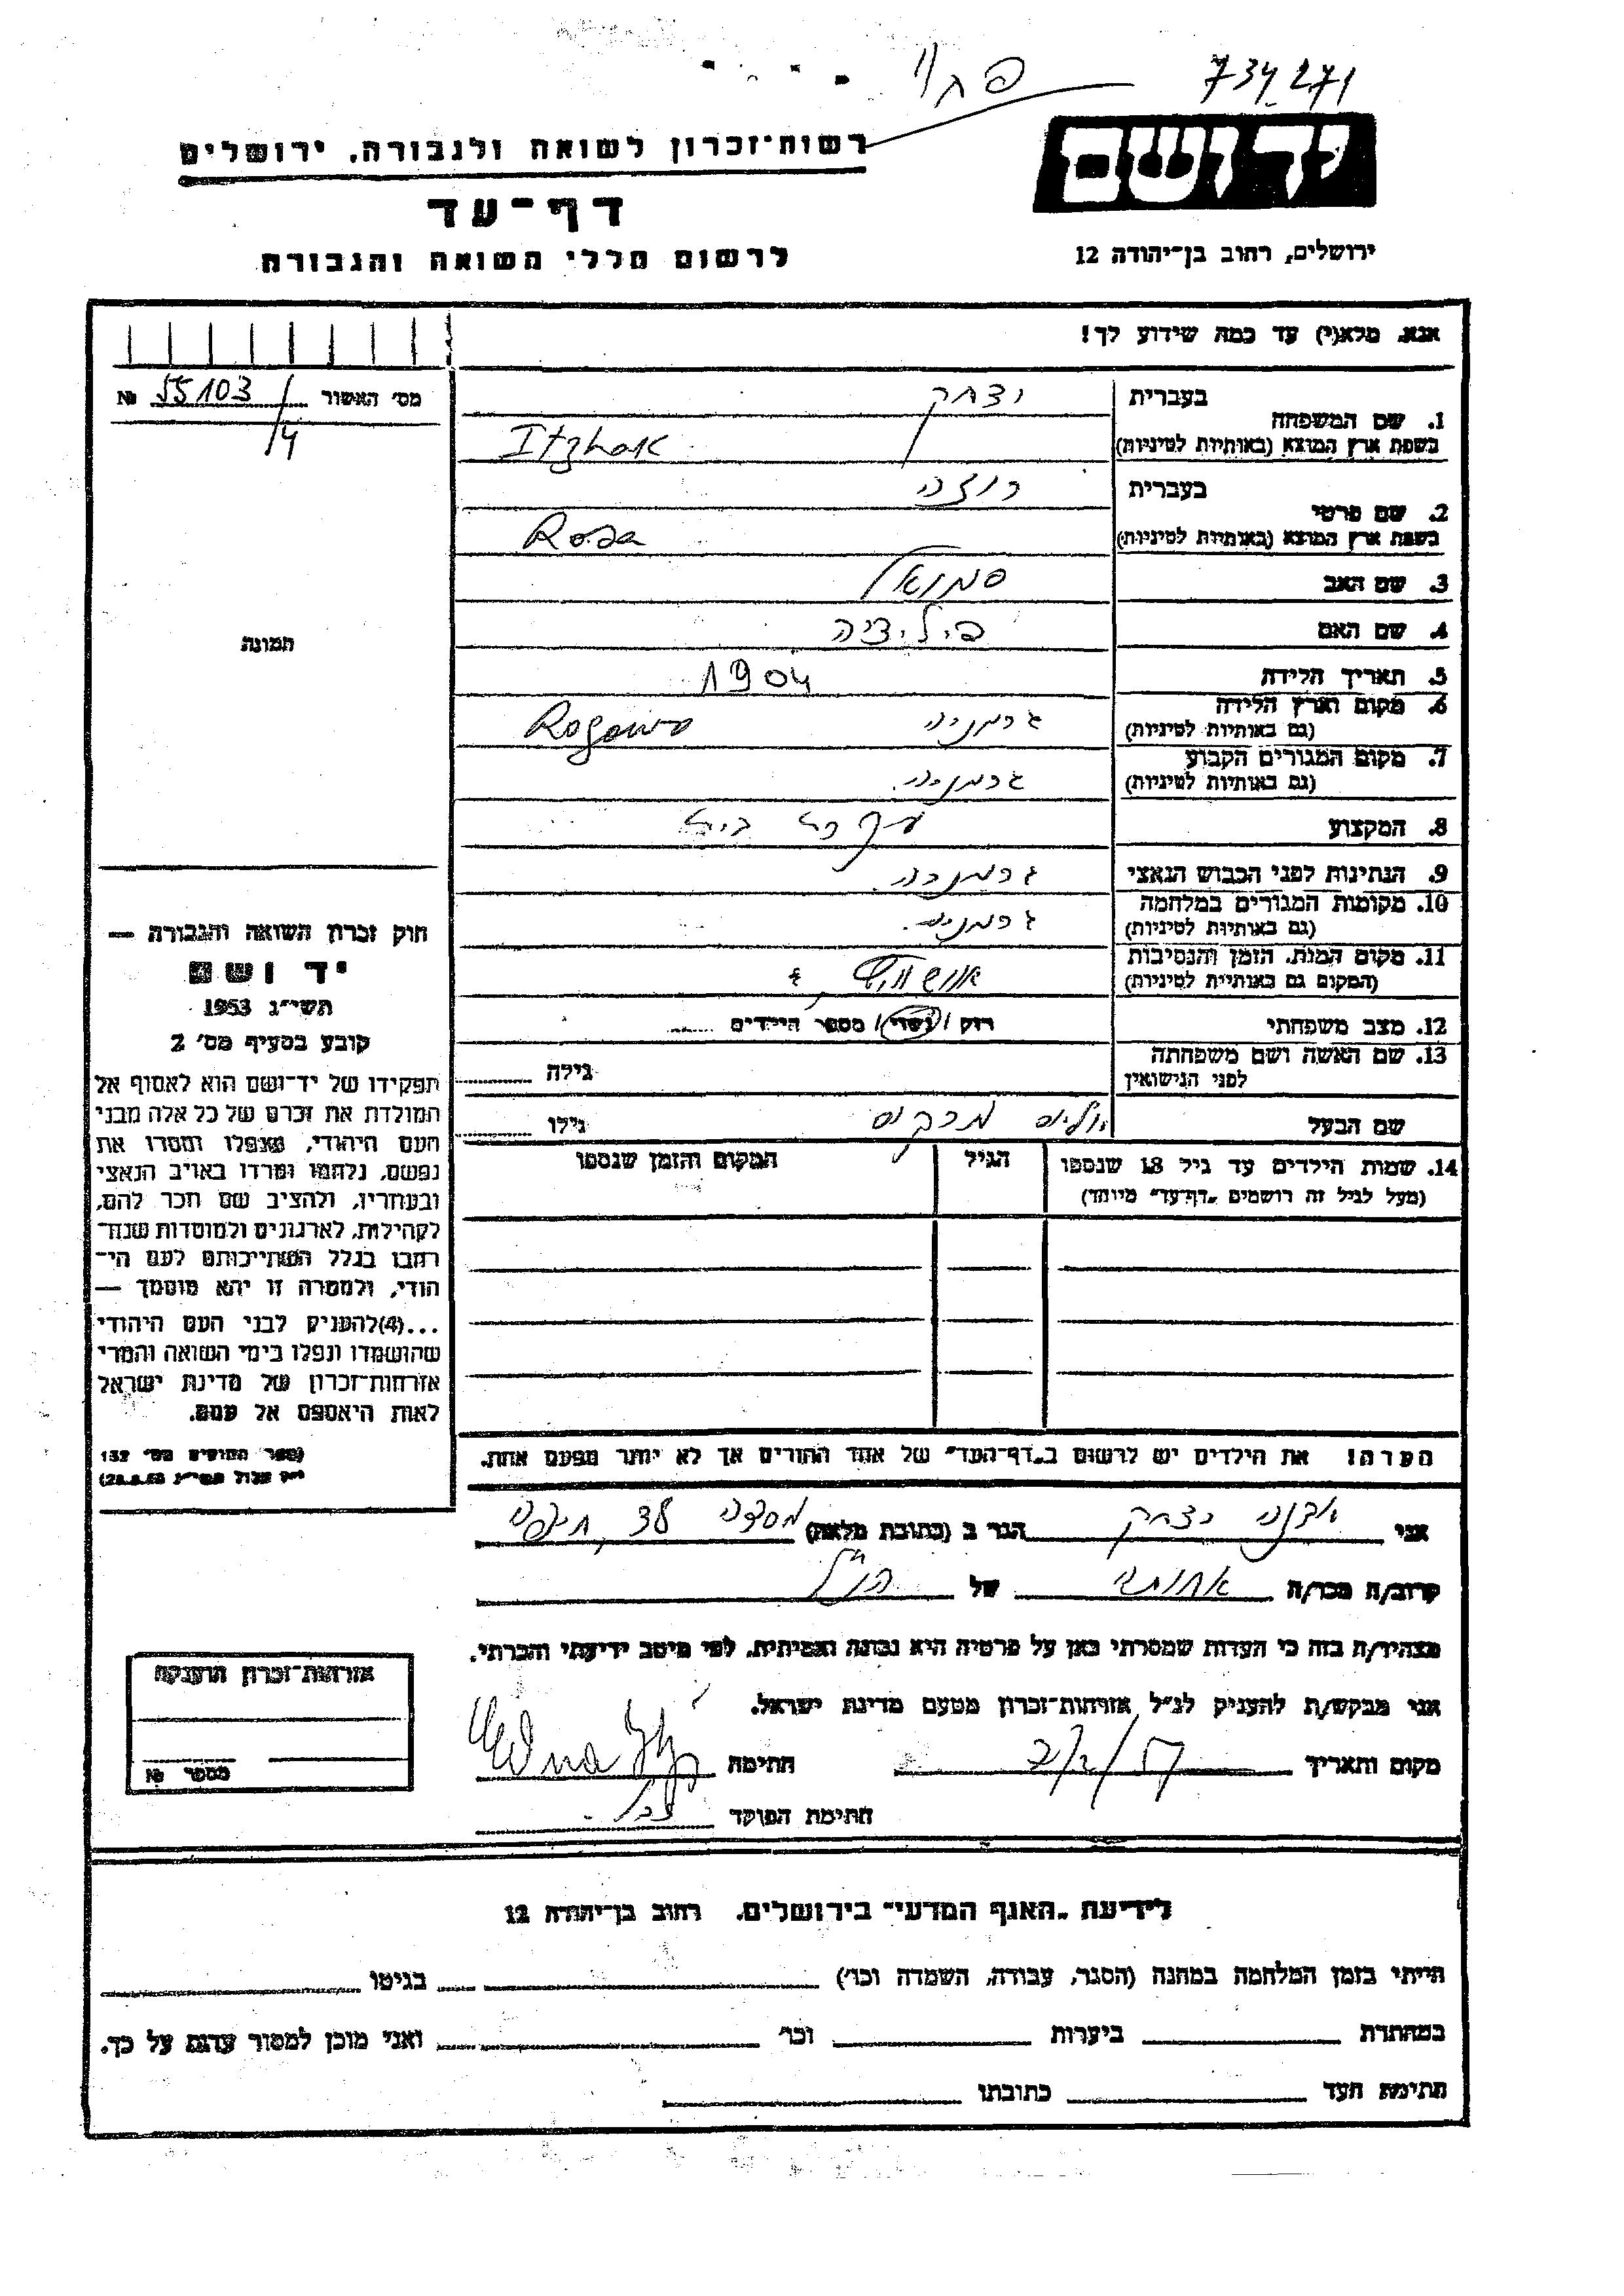 734271
יד ושם
רשות־זכרון לשואה ולגבורה, ירושלים
דף־עד
לרשום חללי השואה והגבורה
ירושלים, רחוב בן־יהודה 12
אנא, מלא(י) עד כמה שידוע לך!
מס׳ האשור 55103/4 №
תמונה
1. שם המשפחה
בעברית יצחק
בשפת ארץ המוצא (באותיות לטיניות) Itzhak
2. שם פרטי
בעברית רוזה
בשפת ארץ המוצא (באותיות לטיניות) Rosa
3. שם האב סמואל
4. שם האם
5. תאריך הלידה 1904
6. מקום וארץ הלידה
(גם באותיות לטיניות) גרמניה Rogowo
7. מקום המגורים הקבוע
(גם באותיות לטיניות) גרמניה
8. המקצוע עקרת בית
9. הנתינות לפני הכבוש הנאצי
10. מקומות המגורים במלחמה
(גם באותיות לטיניות) גרמניה
11. מקום המות, הזמן והנסיבות
(המקום גם באותיות לטיניות)
12. מצב משפחתי רוק / נשוי / מספר הילדים
13. שם האשה ושם משפחתה
לפני הנישואין
גילה
שם הבעל יוליוס מרקוס גילו
14. שמות הילדים עד גיל 18 שנספו
(מעל לגיל זה רושמים „דף־עד״ מיוחד)
הגיל
המקום והזמן שנספו
חוק זכרון השואה והגבורה —
יד ושם
תשי״ג 1953
קובע בסעיף מס׳ 2
תפקידו של יד־ושם הוא לאסוף אל
המולדת את זכרם של כל אלה מבני
העם היהודי, שנפלו ומסרו את
נפשם, נלחמו ומרדו באויב הנאצי
ובעוזריו, ולהציב שם וזכר להם,
לקהילות, לארגונים ולמוסדות שנח־
רבו בגלל השתייכותם לעם הי־
הודי, ולמטרה זו יהא מוסמך —
...(4) להעניק לבני העם היהודי
שהושמדו ונפלו בימי השואה והמרי
אזרחות־זכרון של מדינת ישראל
לאות היאספם אל עמם.
(ספר החוקים מס׳ 132
הערה! את הילדים יש לרשום ב„דף־העד״ של אחד ההורים אך לא יותר מפעם אחת.
אני עדנה יצחק הגר ב (כתובת מלאה) מסדה חיפה
קרוב/ה מכר/ה אחותה של הנ״ל
מצהיר/ה בזה כי העדות שמסרתי כאן על פרטיה היא נכונה ואמיתית, לפי מיטב ידיעתי והכרתי.
אני מבקש/ת להעניק לנ״ל אזרחות־זכרון מטעם מדינת ישראל.
מקום ותאריך חתימה Edna
חתימת הפוקד
אזרחות־זכרון הוענקה
מספר №
לידיעת „האגף המדעי״ בירושלים, רחוב בן־יהודה 12
הייתי בזמן המלחמה במחנה (הסגר, עבודה, השמדה וכו׳) בגיטו
במחתרת ביערות וכו׳ ואני מוכן למסור עדות על כך.
חתימת העד כתובתו